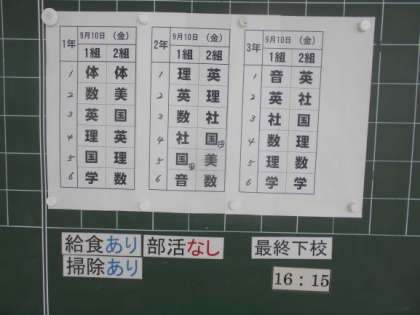 1年 9月10日 (金)
1組 2組
1 体 体
2 数 美
3 英 国
4 理 英
5 国 理
6 学 数
2年 9月10日 (金)
1組 2組
1 理 英
2 英 理
3 数 社
4 社 国
5 国 美
6 音 数
3年 9月10日 (金)
1組 2組
1 音 英
2 英 社
3 社 国
4 数 理
5 理 数
6 学 学
給食あり 部活なし 最終下校
掃除あり 16:15